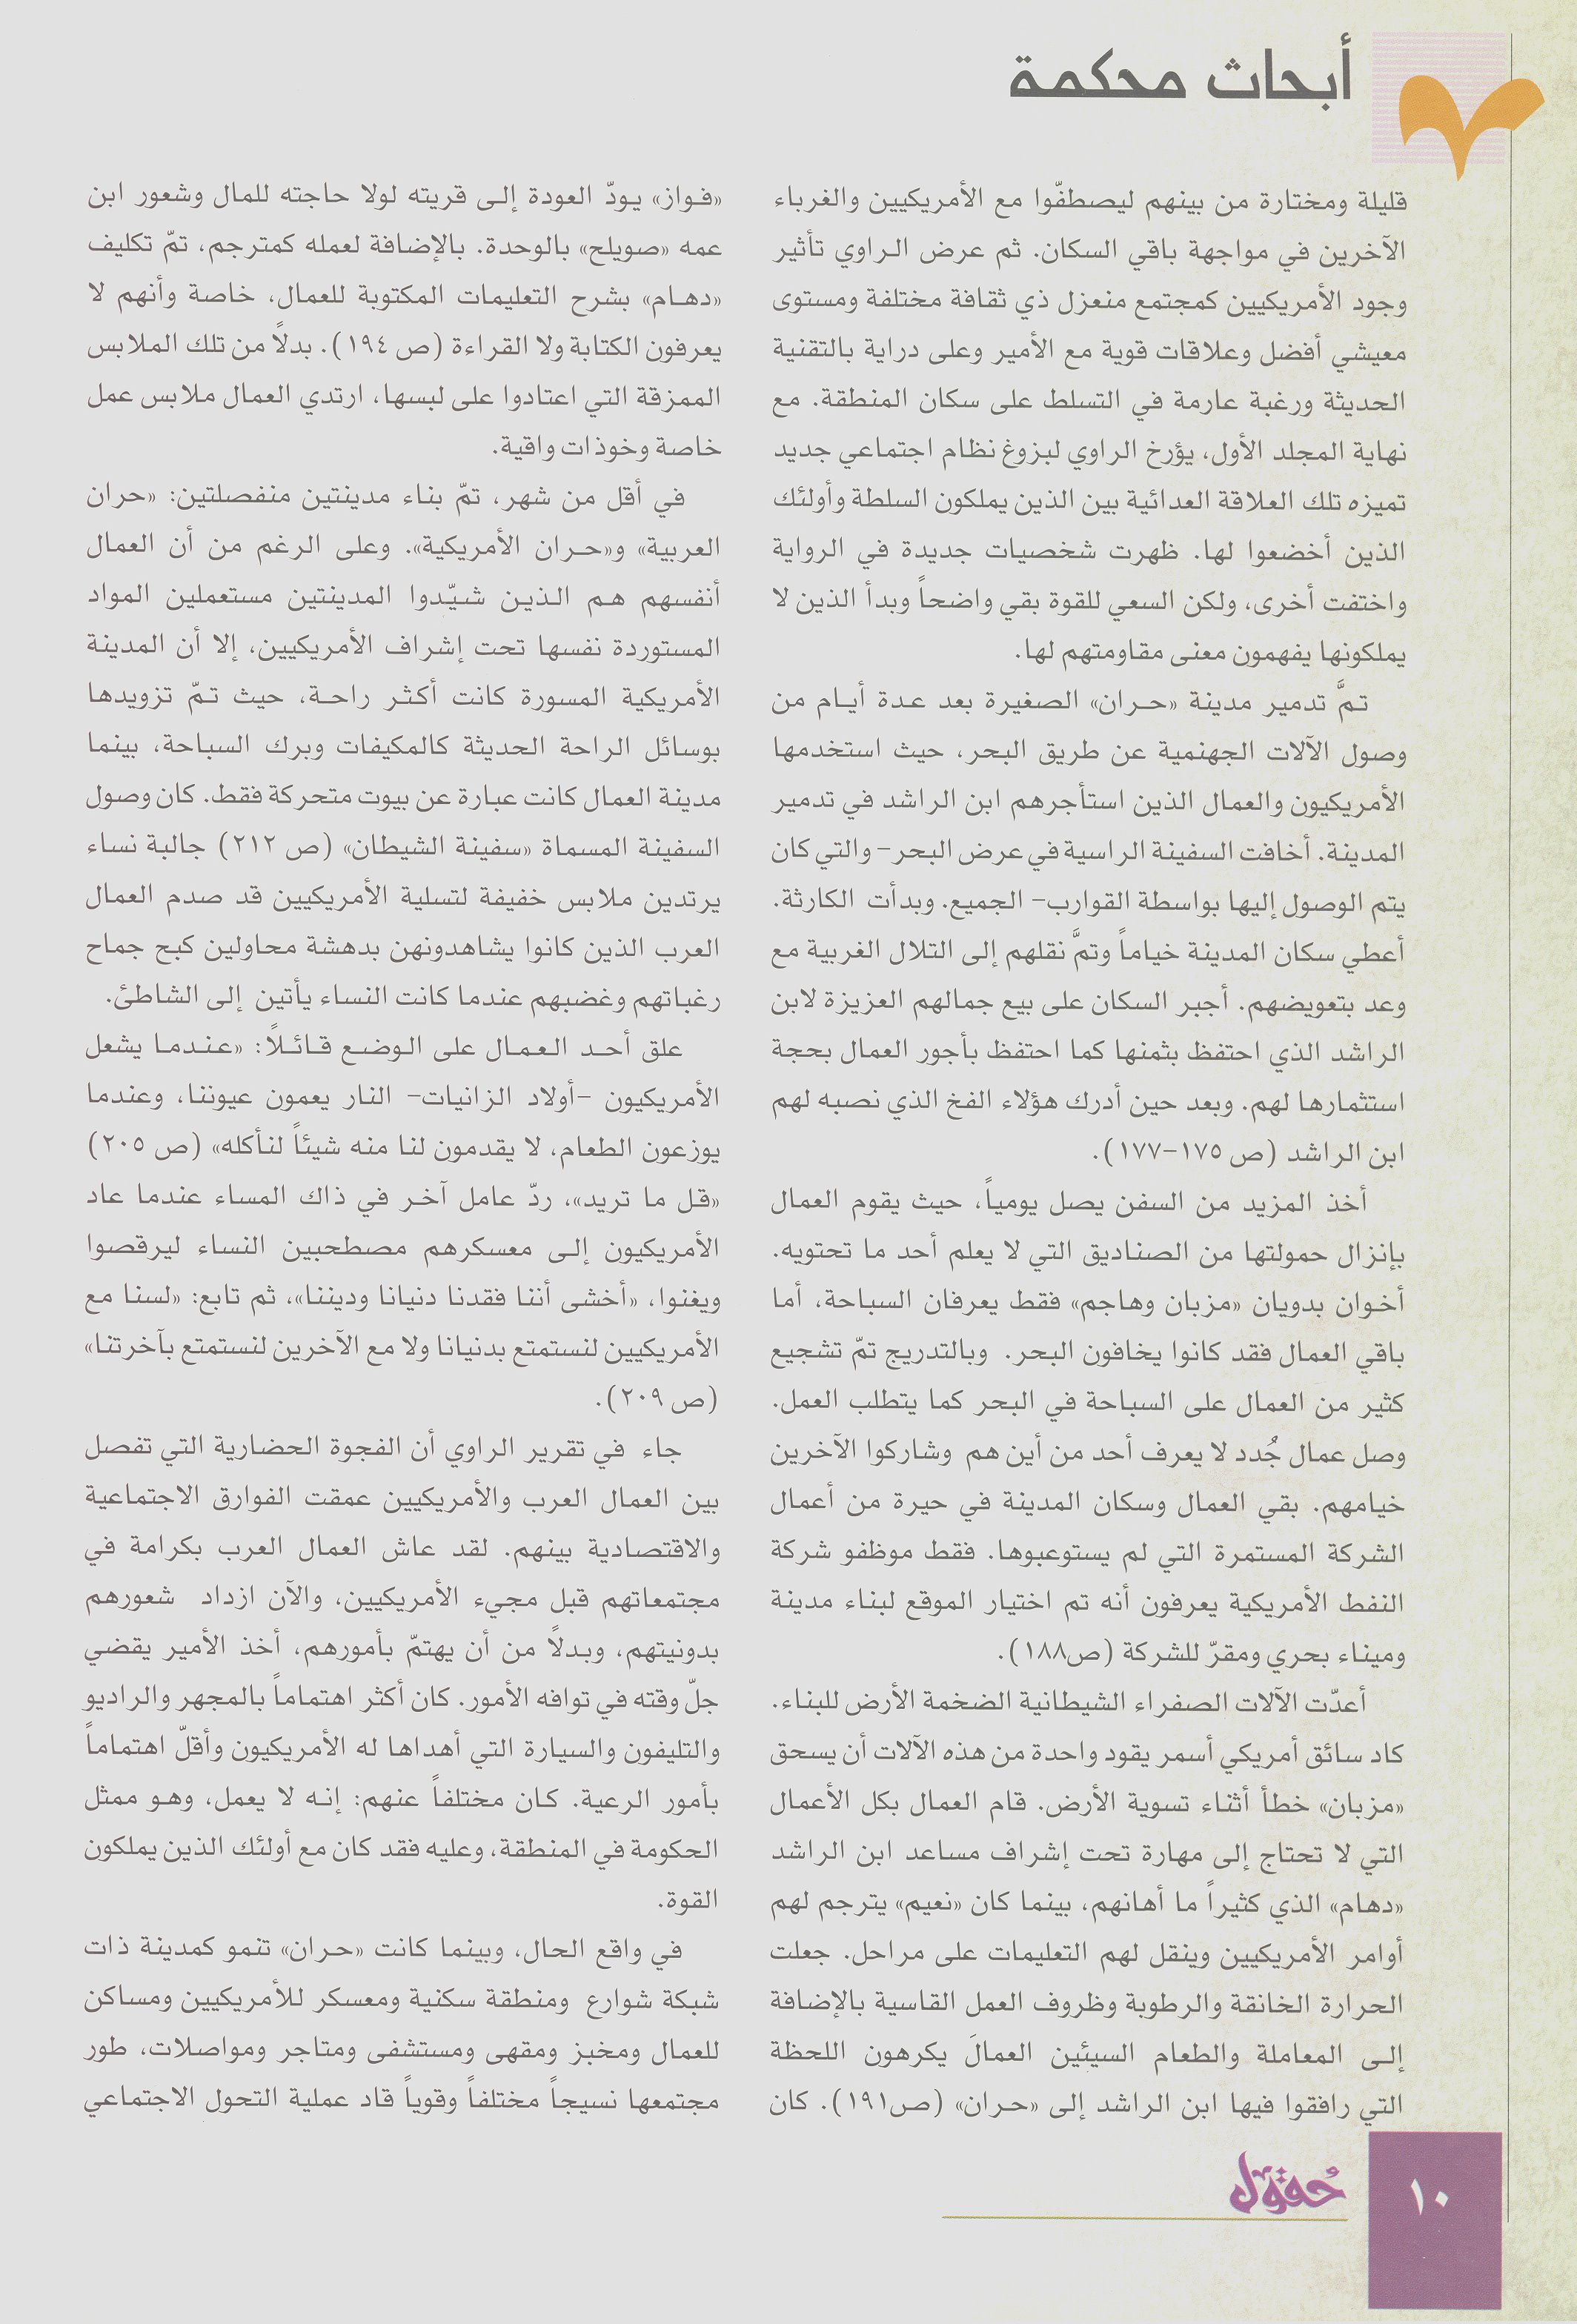 أبحاث محكمة
قليلة ومختارة من بينهم ليصطفّوا مع الأمريكيين والغرباء
الآخرين في مواجهة باقي السكان. ثم عرض الراوي تأثير
وجود الأمريكيين كمجتمع منعزل ذي ثقافة مختلفة ومستوى
معيشي أفضل وعلاقات قوية مع الأمير وعلى دراية بالتقنية
الحديثة ورغبة عارمة في التسلط على سكان المنطقة. مع
نهاية المجلد الأول، يؤرخ الراوي لبزوغ نظام اجتماعي جديد
تميزه تلك العلاقة العدائية بين الذين يملكون السلطة وأولئك
الذين أخضعوا لها. ظهرت شخصيات جديدة في الرواية
واختفت أخرى، ولكن السعي للقوة بقي واضحاً وبدأ الذين لا
يملكونها يفهمون معنى مقاومتهم لها.
تمَّ تدمير مدينة «حران» الصغيرة بعد عدة أيام من
وصول الآلات الجهنمية عن طريق البحر، حيث استخدمها
الأمريكيون والعمال الذين استأجرهم ابن الراشد في تدمير
المدينة. أخافت السفينة الراسية في عرض البحر- والتي كان
يتم الوصول إليها بواسطة القوارب- الجميع. وبدأت الكارثة.
أعطي سكان المدينة خياماً وتمَّ نقلهم إلى التلال الغربية مع
وعد بتعويضهم. أجبر السكان على بيع جمالهم العزيزة لابن
الراشد الذي احتفظ بثمنها كما احتفظ بأجور العمال بحجة
استثمارها لهم. وبعد حين أدرك هؤلاء الفخ الذي نصبه لهم
ابن الراشد (ص ١٧٥-١٧٧).
أخذ المزيد من السفن يصل يومياً، حيث يقوم العمال
بإنزال حمولتها من الصناديق التي لا يعلم أحد ما تحتويه.
أخوان بدويان «مزبان وهاجم» فقط يعرفان السباحة، أما
باقي العمال فقد كانوا يخافون البحر. وبالتدريج تمّ تشجيع
كثير من العمال على السباحة في البحر كما يتطلب العمل.
وصل عمال جُدد لا يعرف أحد من أين هم وشاركوا الآخرين
خيامهم. بقي العمال وسكان المدينة في حيرة من أعمال
الشركة المستمرة التي لم يستوعبوها. فقط موظفو شركة
النفط الأمريكية يعرفون أنه تم اختيار الموقع لبناء مدينة
وميناء بحري ومقرّ للشركة (ص١٨٨).
أعدّت الآلات الصفراء الشيطانية الضخمة الأرض للبناء.
كاد سائق أمريكي أسمر يقود واحدة من هذه الآلات أن يسحق
«مزبان» خطأ أثناء تسوية الأرض. قام العمال بكل الأعمال
التي لا تحتاج إلى مهارة تحت إشراف مساعد ابن الراشد
«دهام» الذي كثيراً ما أهانهم، بينما كان «نعيم» يترجم لهم
أوامر الأمريكيين وينقل لهم التعليمات على مراحل. جعلت
الحرارة الخانقة والرطوبة وظروف العمل القاسية بالإضافة
إلى المعاملة والطعام السيئين العمالَ يكرهون اللحظة
التي رافقوا فيها ابن الراشد إلى «حران» (ص١٩١). كان
«فواز» يودّ العودة إلى قريته لولا حاجته للمال وشعور ابن
عمه «صويلح» بالوحدة. بالإضافة لعمله كمترجم، تمّ تكليف
«دهام» بشرح التعليمات المكتوبة للعمال، خاصة وأنهم لا
يعرفون الكتابة ولا القراءة (ص ١٩٤). بدلاً من تلك الملابس
الممزقة التي اعتادوا على لبسها، ارتدي العمال ملابس عمل
خاصة وخوذات واقية.
في أقل من شهر، تمّ بناء مدينتين منفصلتين: «حران
العربية» و«حران الأمريكية». وعلى الرغم من أن العمال
أنفسهم هم الذين شيّدوا المدينتين مستعملين المواد
المستوردة نفسها تحت إشراف الأمريكيين، إلا أن المدينة
الأمريكية المسورة كانت أكثر راحة، حيث تمّ تزويدها
بوسائل الراحة الحديثة كالمكيفات وبرك السباحة، بينما
مدينة العمال كانت عبارة عن بيوت متحركة فقط. كان وصول
السفينة المسماة «سفينة الشيطان» (ص ٢١٢) جالبة نساء
يرتدين ملابس خفيفة لتسلية الأمريكيين قد صدم العمال
العرب الذين كانوا يشاهدونهن بدهشة محاولين كبح جماح
رغباتهم وغضبهم عندما كانت النساء يأتين إلى الشاطئ.
علق أحد العمال على الوضع قائلاً: «عندما يشعل
الأمريكيون -أولاد الزانيات- النار يعمون عيوننا، وعندما
يوزعون الطعام، لا يقدمون لنا منه شيئاً لنأكله» (ص ٢٠٥)
«قل ما تريد»، ردّ عامل آخر في ذاك المساء عندما عاد
الأمريكيون إلى معسكرهم مصطحبين النساء ليرقصوا
ويغنوا، «أخشى أننا فقدنا دنيانا وديننا»، ثم تابع: «لسنا مع
الأمريكيين لنستمتع بدنيانا ولا مع الآخرين لنستمتع بآخرتنا»
(ص ٢٠٩).
جاء في تقرير الراوي أن الفجوة الحضارية التي تفصل
بين العمال العرب والأمريكيين عمقت الفوارق الاجتماعية
والاقتصادية بينهم. لقد عاش العمال العرب بكرامة في
مجتمعاتهم قبل مجيء الأمريكيين، والآن ازداد شعورهم
بدونيتهم، وبدلاً من أن يهتمّ بأمورهم، أخذ الأمير يقضي
جلّ وقته في توافه الأمور. كان أكثر اهتماماً بالمجهر والراديو
والتليفون والسيارة التي أهداها له الأمريكيون وأقلّ اهتماماً
بأمور الرعية. كان مختلفاً عنهم: إنه لا يعمل، وهو ممثل
الحكومة في المنطقة، وعليه فقد كان مع أولئك الذين يملكون
القوة.
في واقع الحال، وبينما كانت «حران» تنمو كمدينة ذات
شبكة شوارع ومنطقة سكنية ومعسكر للأمريكيين ومساكن
للعمال ومخبز ومقهى ومستشفى ومتاجر ومواصلات، طور
مجتمعها نسيجاً مختلفاً وقوياً قاد عملية التحول الاجتماعي
حُقول
١٠